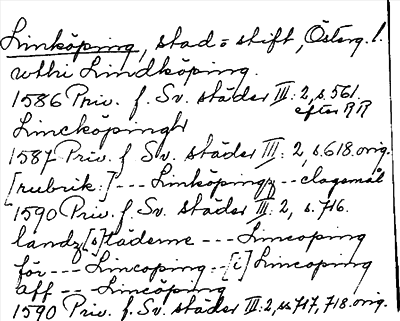 Linköping, stad o stift, Österg. l.
uthi Lindköping.
1586 Priv. f. Sv. städer III: 2, s. 561.
efter RR
Lincköpingh
1587 Priv. f. Sv. städer III: 2, s. 618. orig.
[rubrik:] --- Linköpingz -- clagemål
1590 Priv. f. Sv. städer III: 2, s. 716.
landz[s]täderne --- Lincoping
för --- Lincoping -- [i] Lincoping
aff -- Lincöping
1590 Priv. f. Sv. städer III: 2, ss 717, 718. orig.